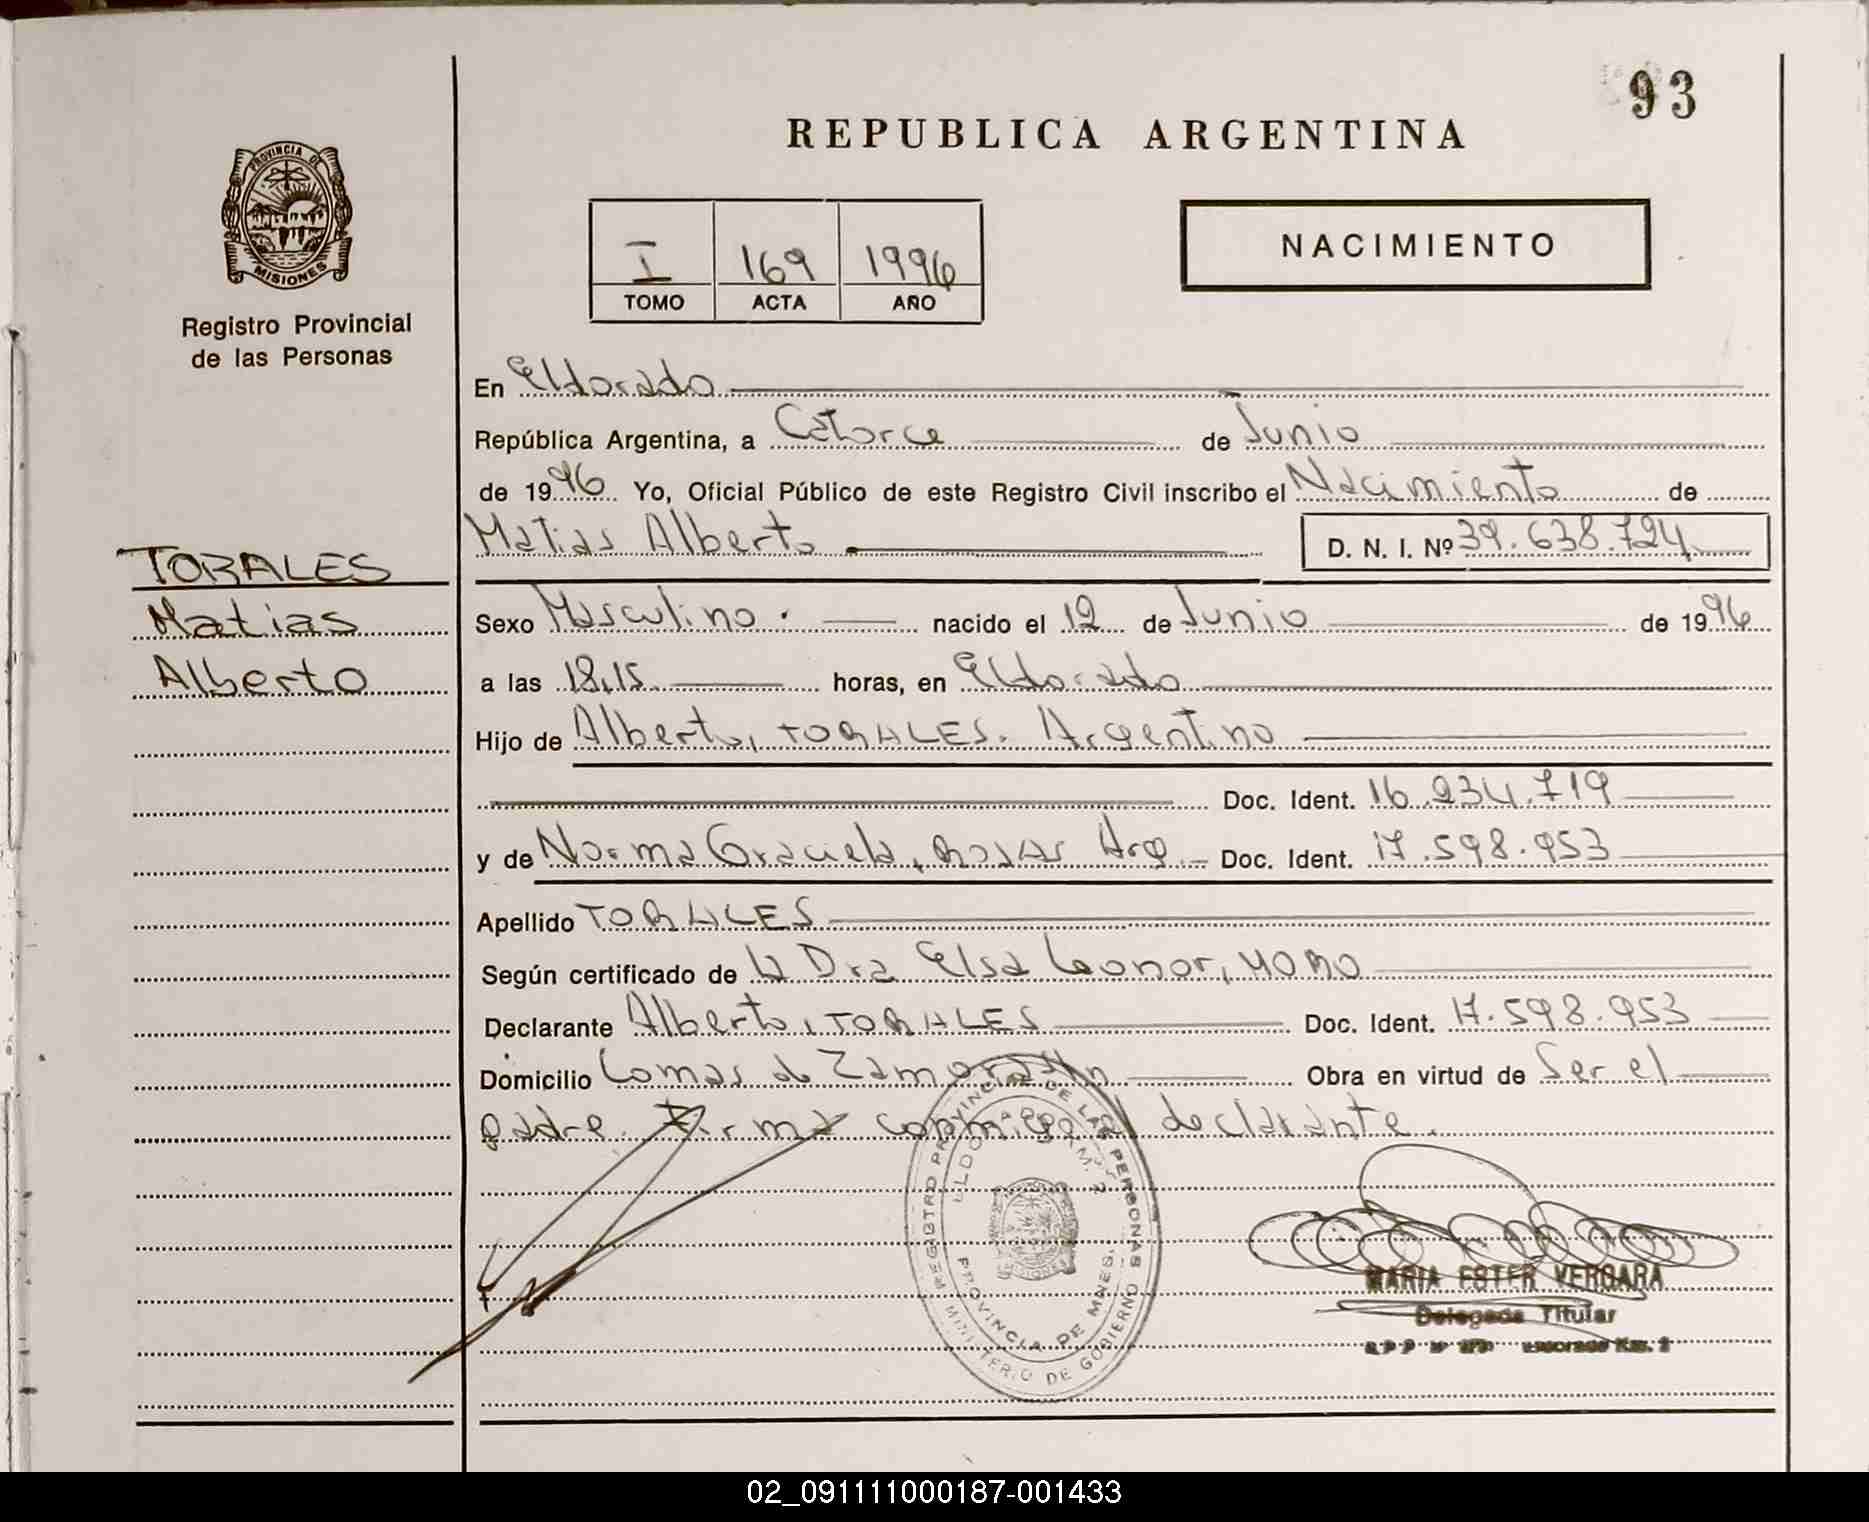 93
REPUBLICA ARGENTINA
PROVINCIA DE
MISIONES
Registro Provincial
de las Personas
I 169 1996
TOMO ACTA AÑO
NACIMIENTO
En Eldorado
República Argentina, a Catorce de Junio
de 1996 Yo, Oficial Público de este Registro Civil inscribo el Nacimiento de
Matias Alberto D. N. I. Nº 39.638.724
TORALES
Matias
Alberto
Sexo Masculino. nacido el 12 de Junio de 1996
a las 18,15 horas, en Eldorado
Hijo de Alberto, TORALES. Argentino
Doc. Ident. 16.234.719
y de Norma Graciela, ROJAS Arg. Doc. Ident. 17.598.953
Apellido TORALES
Según certificado de la Dra Elsa Leonor, MORO
Declarante Alberto, TORALES Doc. Ident. 17.598.953
Domicilio Lomas de Zamora S/n Obra en virtud de Ser el
padre. Firma conmigo el declarante.
REGISTRO PROVINCIAL DE LAS PERSONAS
MINISTERIO DE GOBIERNO
ELDORADO KM. 2
PROVINCIA DE MNES.
MISIONES
MARIA ESTER VERGARA
Delegada Titular
Eldorado Km. 2
02_091111000187-001433